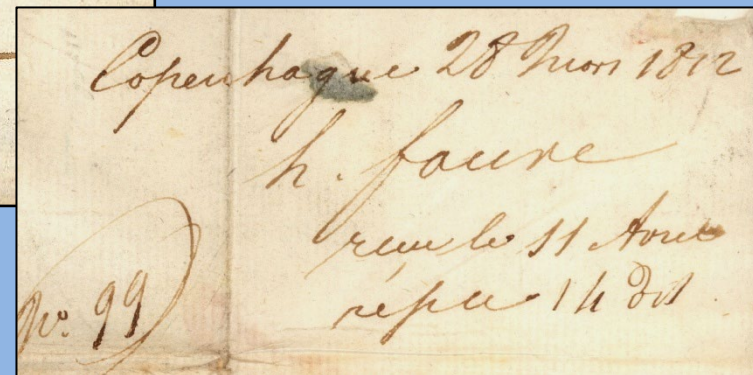 Copenhague 28 Mars 1812
h. faure
recu le 11 Avril
répdu 14 dit
No. 99